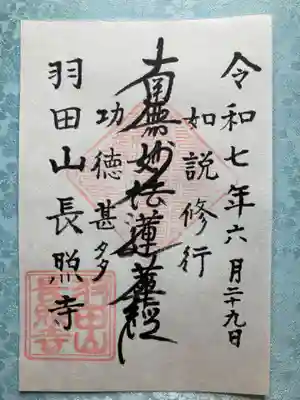 令和七年六月二十九日
如説修行
南無妙法蓮華経
功徳甚多
羽田山長照寺
羽田山
長照寺